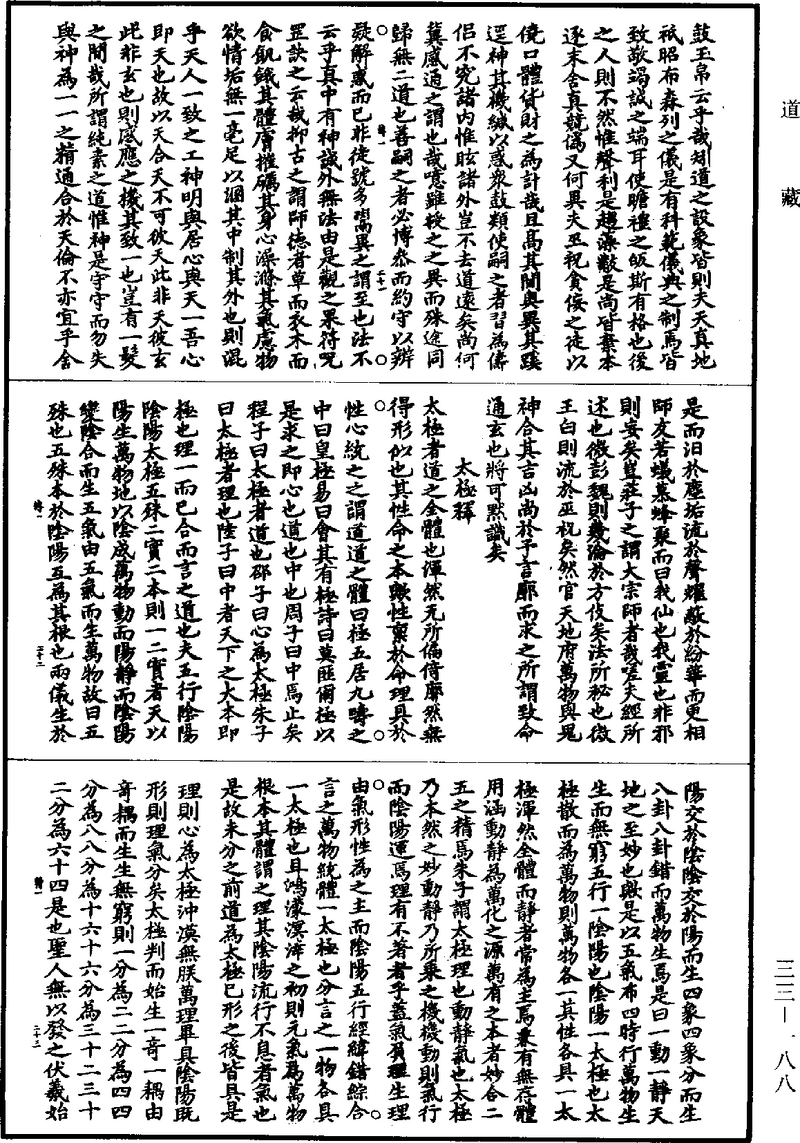 道藏
三三—一八八
鼓玉帛云乎哉知道之設象皆則夫天真地
祇昭布森列之儀是有科範儀典之制焉皆
致敬竭誠之端耳使瞻禮之皈斯有格也後
之人則不然惟聲利是趨藻黻是尚皆棄本
逐末舍真競偽又何異夫巫祝貪佞之徒以
僥口體貨財之為計哉且高其閈奧異其蹊
逕神其機緘以惑衆鼓類使嗣之者習為儔
侣不究諸内惟眩諸外豈不去道遠矣尚何
冀感通之謂也哉噫雖粄之之異而殊途同
歸無二道也善嗣之者必博叅而約守以辨
疑解惑而已非徒號多鬻異之謂至也法不
云乎真中有神誠外無法由是觀之果符呪
罡訣之云哉抑古之謂師德者草而衣木而
食飢餓其體膚摧礪其身心澡滌其氣慮物
欲情垢無一毫足以溷其中制其外也則混
乎天人一致之工神明與居心與天一吾心
即天也故以天合天不可彼天此非天彼玄
此非玄也則感應之機其致一也豈有一髮
之間哉所謂純素之道惟神是守守而勿失
與神為一一之精通合於天倫不亦宜乎舍
是而汩於塵垢流於聲耀蔽於紛華而更相
師友若蟻慕蜂聚而曰我仙也我靈也非邪
則妄矣豈莊子之謂大宗師者哉嗟夫經所
述也微彭魏則幾淪於方伎矣法所祕也微
王白則流於巫祝矣然官天地府萬物與鬼
神合其吉凶尚於予言廓而求之所謂致命
通玄也將可默識矣
太極釋
太極者道之全體也渾然无所偏倚廓然無
得形似也其性命之本歟性稟於命理具於
性心統之之謂道道之體曰極五居九疇之
中曰皇極易曰會其有極詩曰莫匪爾極以
是求之即心也道也中也周子曰中焉止矣
程子曰太極者道也邵子曰心為太極朱子
曰太極者理也陸子曰中者天下之大本即
極也理一而已合而言之道也夫五行陰陽
陰陽太極五殊二實二本則一二實者天以
陽生萬物地以陰成萬物動而陽靜而陰陽
變陰合而生五氣由五氣而生萬物故曰五
殊也五殊本於陰陽互為其根也兩儀生於
陽交於陰陰交於陽而生四象四象分而生
八卦八卦錯而萬物生焉是曰一動一靜天
地之至妙也歟是以五氣布四時行萬物生
生而無窮五行一陰陽也陰陽一太極也太
極散而為萬物則萬物各一其性各具一太
極渾然全體而靜者常為主焉乗有無存體
用涵動靜為萬化之源萬有之本者妙合二
五之精焉朱子謂太極理也動靜氣也太極
乃本然之妙動靜乃所乗之機機動則氣行
而陰陽運焉理有不著者乎蓋氣負理生理
由氣形性為之主而陰陽五行經緯錯綜合
言之萬物統體一太極也分言之一物各具
一太極也且鴻濛溟涬之初則元氣為萬物
根本其體謂之理其陰陽流行不息者氣也
是故未分之前道為太極已形之後皆具是
理則心為太極沖漠無朕萬理畢具陰陽既
形則理氣分矣太極判而始生一奇一耦由
奇耦而生生無窮則一分為二二分為四四
分為八八分為十六十六分為三十二三十
二分為六十四是也聖人無以發之伏羲始